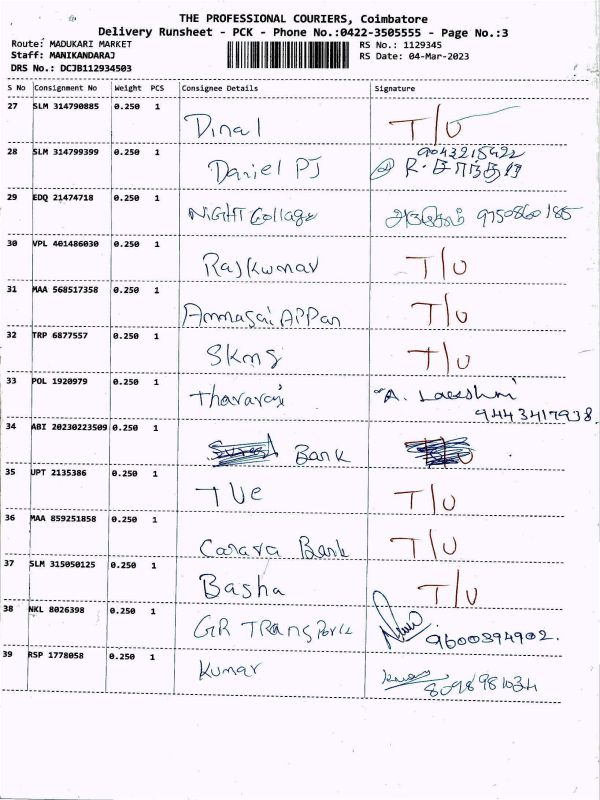 THE PROFESSIONAL COURIERS, Coimbatore
Delivery Runsheet - PCK - Phone No.:0422-3505555 - Page No.:3
Route: MADUKARI MARKET RS No.: 1129345
Staff: MANIKANDARAJ RS Date: 04-Mar-2023
DRS No.: DCJB112934503
S No Consignment No Weight PCS Consignee Details Signature
27 SLM 314790885 0.250 1 Dinal T/U
9043215422
28 SLM 314799399 0.250 1 Daniel PJ
29 EDQ 21474718 0.250 1 NIGHT Collage 9750860185
30 VPL 401486030 0.250 1 Rajkumar T/U
31 MAA 568517358 0.250 1 Ammasai APPan T/U
32 TRP 6877557 0.250 1 SKMS T/U
33 POL 1920979 0.250 1 Tharavaj A.
9443417938.
34 ABI 20230223509 0.250 1 Bank
35 UPT 2135386 0.250 1 TVe T/U
36 MAA 859251858 0.250 1 Canara Bank T/U
37 SLM 315050125 0.250 1 Basha T/U
38 NKL 8026398 0.250 1 GR TRANSPorts 9600394902.
39 RSP 1778058 0.250 1 Kumar
8098981034